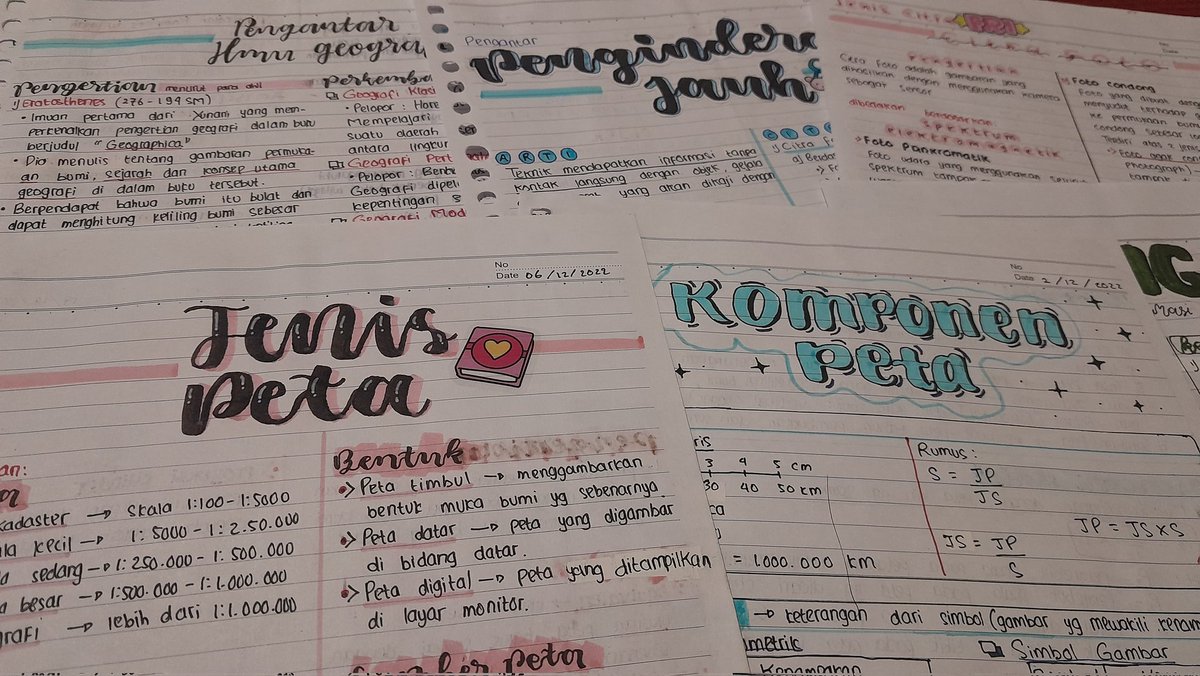 Pengantar
Ilmu geogra
Pengertian menurut para ahli
1) Eratosthenes (276-194 SM)
• Imuan pertama dari Yunani yang mem-
perkenalkan pengertian geografi dalam buku
berjudul "Geographica"
• Dia menulis tentang gambaran permuka-
an bumi, sejarah dan konsep utama
geografi di dalam buku tersebut.
• Berpendapat bahwa bumi itu bulat dan
dapat menghitung keliling bumi sebesar
Perkemba
Geografi Klasi
• Pelopor : Hore
Mempelajari
suatu daerah
antara lingkur
Geografi Pert
• Pelopor : Bern
Geografi dipel
kepentingan s
Geografi Mod
Pengantar
Penginder
Jauh
ARTI
Teknik mendapatkan informasi tanpa
kontak langsung dengan objek, gejala
yang akan dikaji dengan
CIT
1) Citra f
a) Berdar
Jenis Citra
No
Date
Citra Foto
Pengertian
Citra Foto adalah gambaran yang
dihasilkan dengan menggunakan kamera
sebagai sensor
dibedakan berdasarkan
Spektrum
Elektromagnetik
Foto Pankromatik
Foto udara yang menggunakan
spektrum tampak
Foto condong
Foto yang dibuat deng
menyudut terhadap
ke permukaan bumi
condong sebesar
Terdiri atas 2 jenis
Photograph)
No
Date 06/12/2022
Jenis
Peta
an:
kadaster → skala 1:100-1:5000
la kecil → 1: 5000 - 1: 2.50.000
a sedang → 1: 250.000 - 1: 500.000
a besar → 1:500.000 - 1:1.000.000
grafi → lebih dari 1:1.000.000
Bentuk
Peta timbul → menggambarkan
bentuk muka bumi yg sebenarnya.
Peta datar → peta yang digambar
di bidang datar.
Peta digital → peta yang ditampilkan
di layar monitor.
Peta
No
Date 2/12/2022
Komponen
Peta
ris
3 4 5 cm
30 40 50 km
= 1.000.000 km
Rumus :
S = JP
JS
JP = JS x S
JS = JP
S
→ keterangan dari simbol (gambar yg mewakili kenam
metrik
Simbol Gambar
Kenampakan
IG